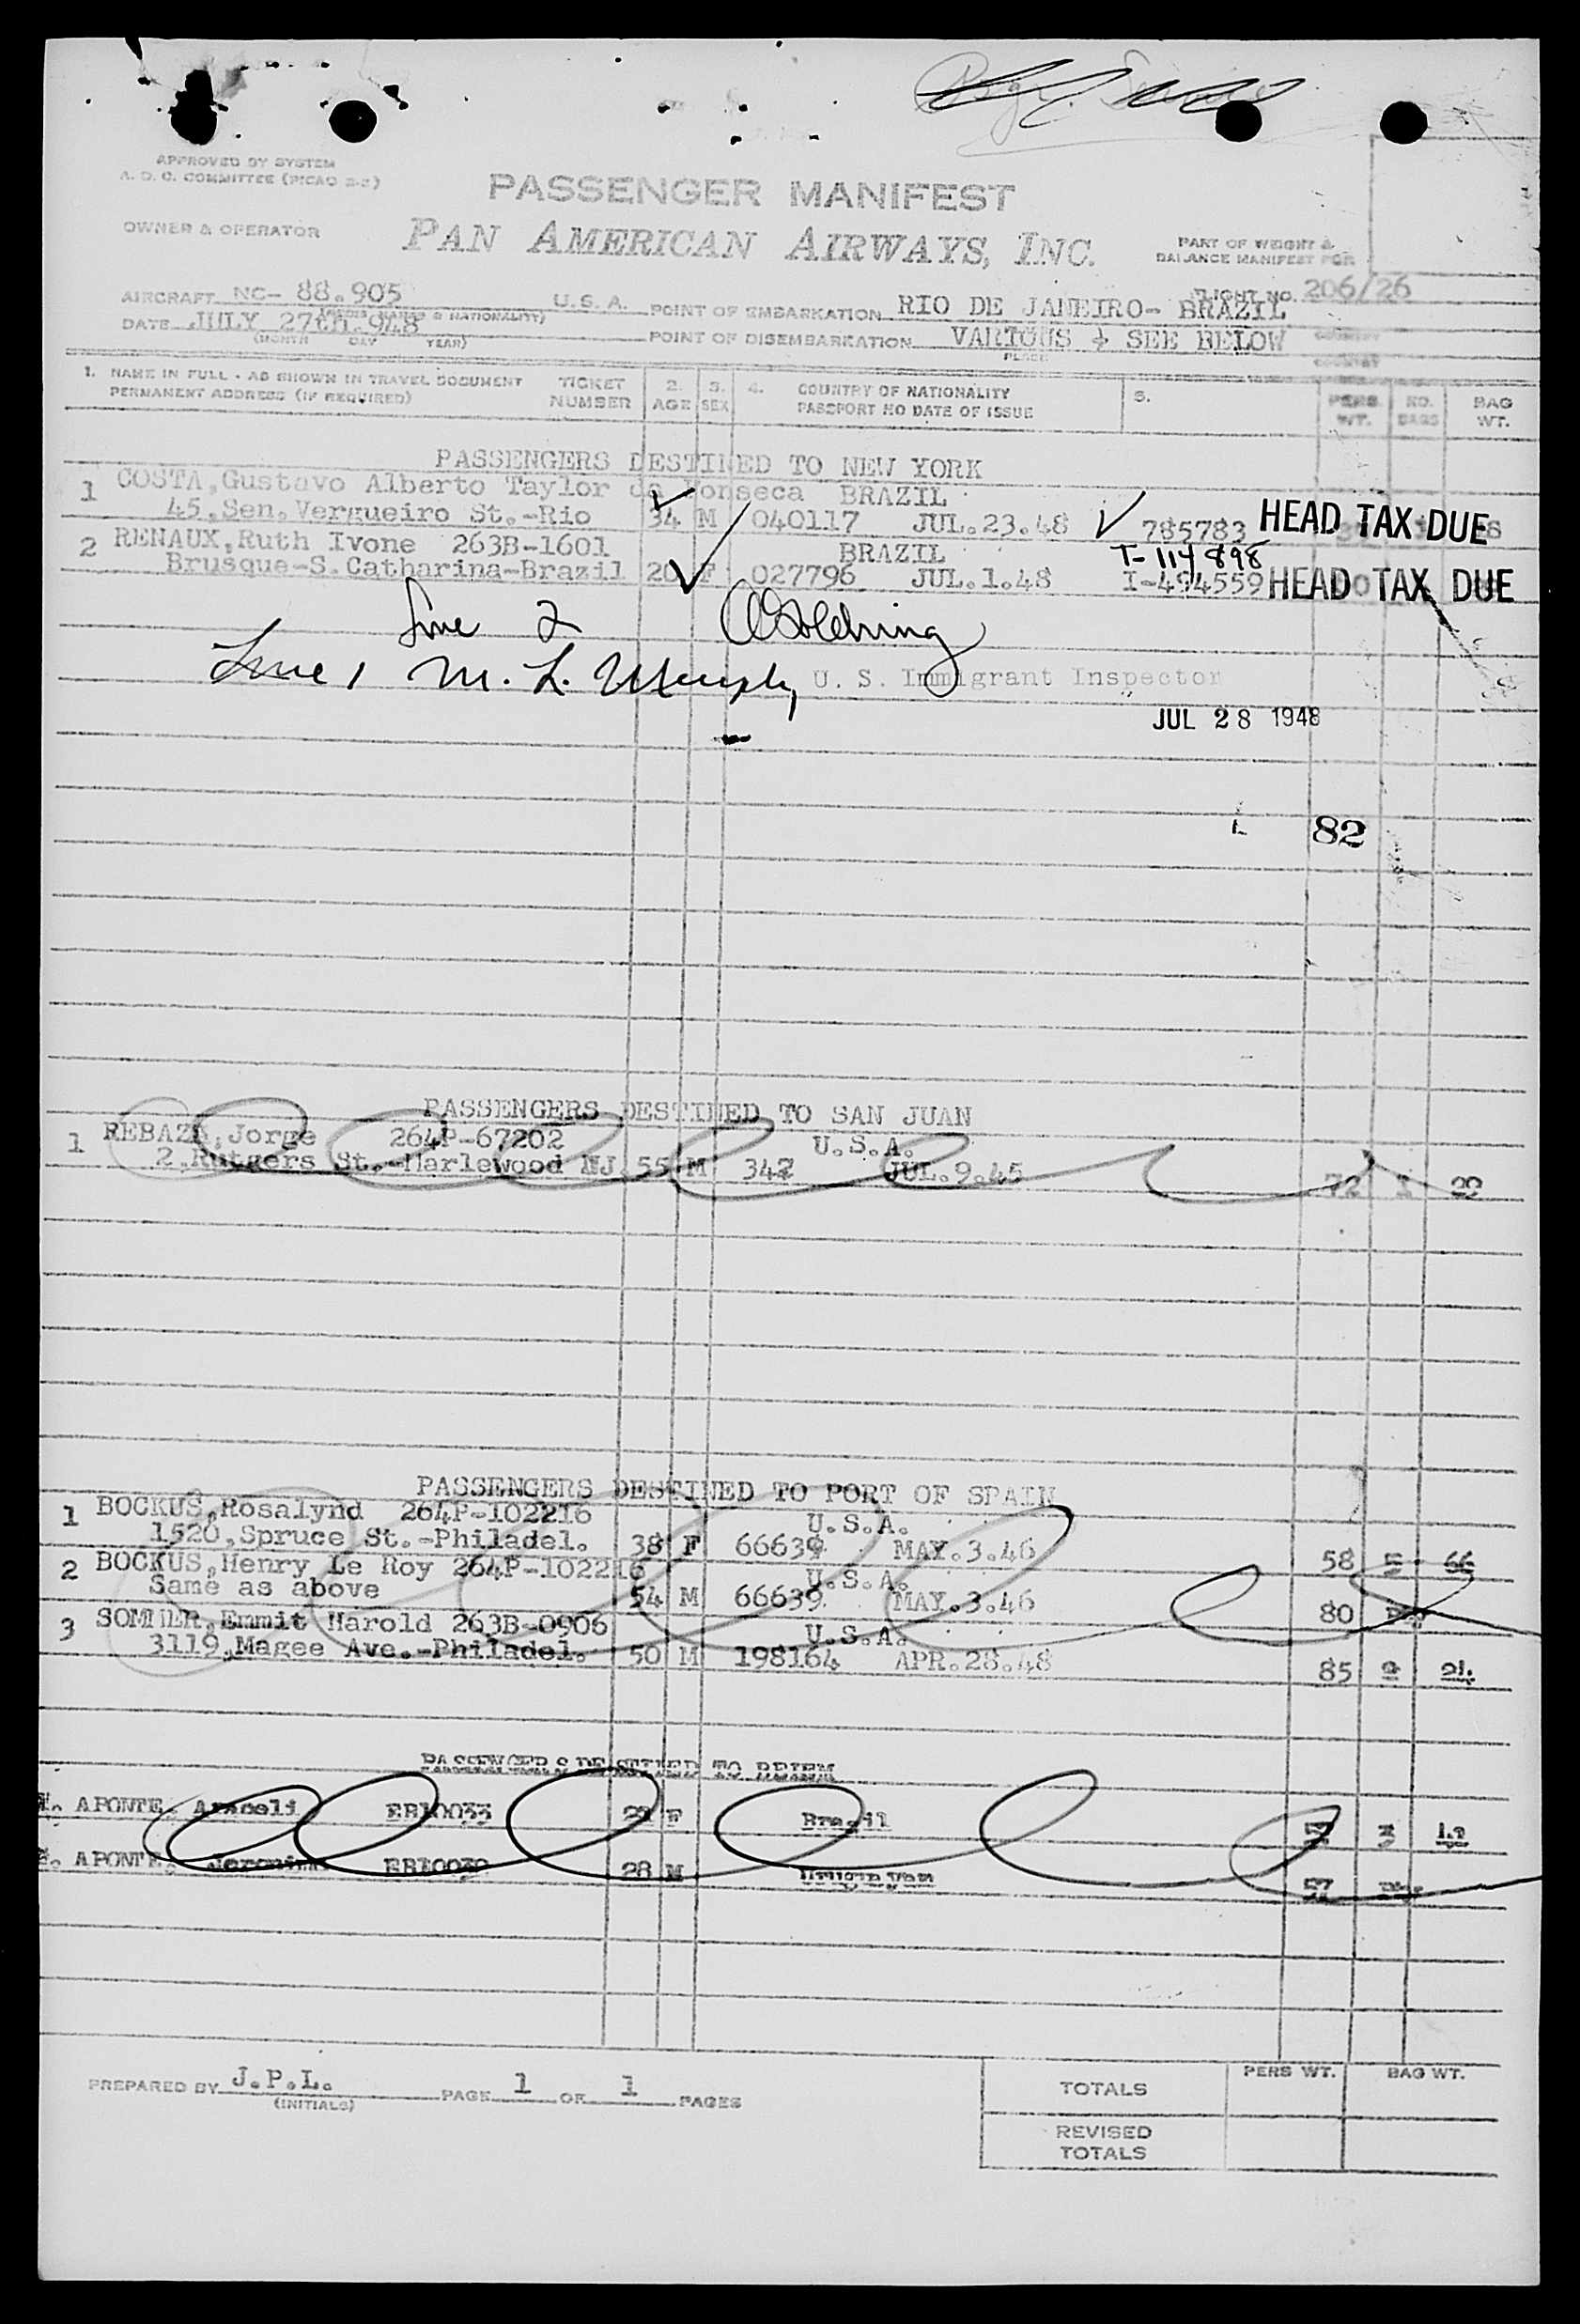 APPROVED BY SYSTEM
A. D. C. COMMITTEE (PICAO 2-2)
PASSENGER MANIFEST
OWNER & OPERATOR PAN AMERICAN AIRWAYS, INC. PART OF WEIGHT &
BALANCE MANIFEST FOR
AIRCRAFT NC- 88.905 U.S.A. POINT OF EMBARKATION RIO DE JANEIRO- BRAZIL FLIGHT NO. 206/26
DATE JULY 27th.948 POINT OF DISEMBARKATION VARIOUS + SEE BELOW
(MONTH DAY YEAR) PLACE COUNTRY
1. NAME IN FULL - AS SHOWN IN TRAVEL DOCUMENT TICKET 2. 3. 4. COUNTRY OF NATIONALITY 5. PERS. NO. BAG
PERMANENT ADDRESS (IF REQUIRED) NUMBER AGE SEX PASSPORT NO DATE OF ISSUE WT. BAGS WT.
PASSENGERS DESTINED TO NEW YORK
1 COSTA,Gustavo Alberto Taylor da Fonseca BRAZIL
45,Sen.Vergueiro St.-Rio 34 M 040117 JUL.23.48 785783 HEAD TAX DUE
2 RENAUX,Ruth Ivone 263B-1601 BRAZIL T-114898
Brusque-S.Catharina-Brazil 20 F 027796 JUL.1.48 I-494559 HEAD TAX DUE
Line 2
Line 1 M. L. Murphy U. S. Immigrant Inspector
JUL 28 1948
82
PASSENGERS DESTINED TO SAN JUAN
1 REBAZA,Jorge 264P-67202 U.S.A.
2,Rutgers St.-Marlewood NJ 55 M 342 JUL.9.45 72 1 22
PASSENGERS DESTINED TO PORT OF SPAIN
1 BOCKUS,Rosalynd 264P-102216 U.S.A.
1520,Spruce St.-Philadel. 38 F 66639 MAY.3.46 58 5 66
2 BOCKUS,Henry Le Roy 264P-102216 U.S.A.
Same as above 54 M 66639 MAY.3.46 80
3 SOMMER,Emmit Harold 263B-0906 U.S.A.
3119,Magee Ave.-Philadel. 50 M 198164 APR.28.48 85 2
PASSENGERS DESTINED TO BELEM
1. APONTE, Araceli 29 F Brazil
2. APONTE, Jeronimo 28 M Uruguayan 57
PREPARED BY J.P.L. PAGE 1 OF 1 PAGES
(INITIALS)
PERS WT. BAG WT.
TOTALS
REVISED
TOTALS